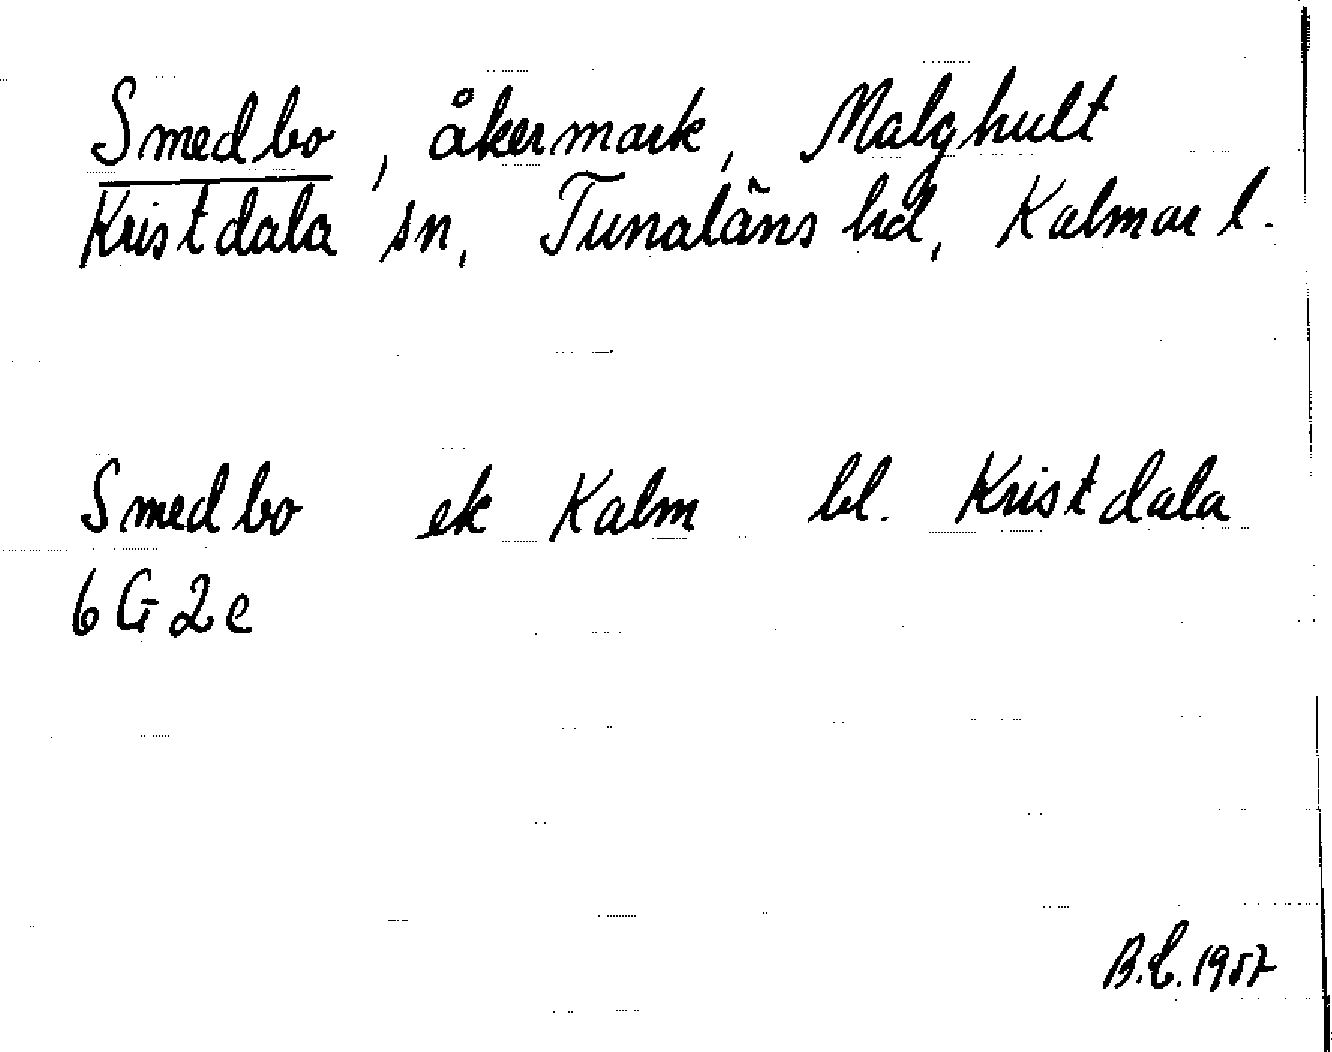 Smedbo, åkermark, Malghult
Kristdala sn, Tunaläns hd, Kalmar l.
Smedbo ek Kalm bl. Kristdala
6G2e
1957